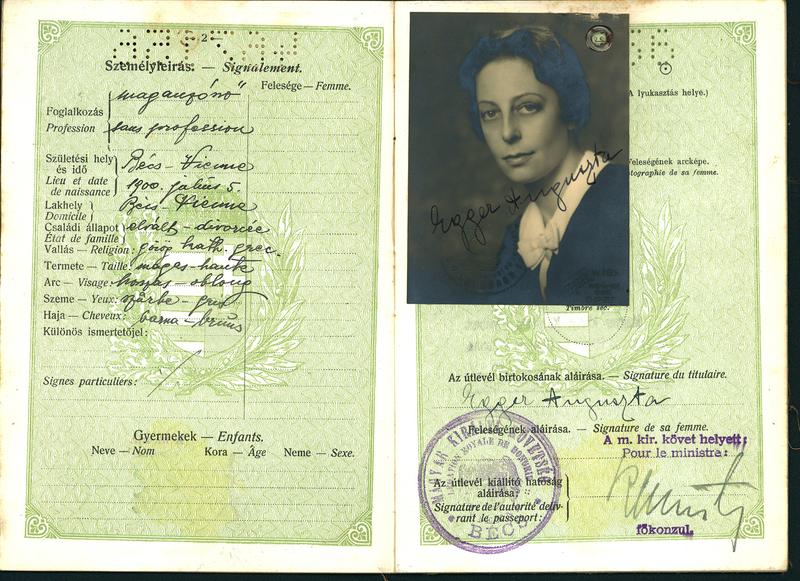 — 2 —
Személyleírás. — Signalement.
Felesége — Femme.
Foglalkozás
Profession
magánzónő
sans profession
Születési hely
és idő
Lieu et date
de naissance
Bécs - Vienne
1900. július 5.
Lakhely
Domicile
Bécs Vienne
Családi állapot
État de famille
elvált - divorcée
Vallás — Religion: görög kath. grec.
Termete — Taille: magas - haute
Arc — Visage: hosszas - oblong
Szeme — Yeux: szürke - gris
Haja — Cheveux: barna - bruns
Különös ismertetőjel:
Signes particuliers:
Gyermekek — Enfants.
Neve — Nom Kora — Âge Neme — Sexe.
A lyukasztás helye.)
Feleségének arcképe.
tographie de sa femme.
Egger Auguszta
Timbre sec.
Az útlevél birtokosának aláírása. — Signature du titulaire.
Egger Auguszta
Feleségének aláírása. — Signature de sa femme.
A m. kir. követ helyett:
Pour le ministre:
Az útlevél kiállító hatóság
aláírása:
Signature de l'autorité déliv-
rant le passeport:
MAGYAR KIRÁLYI KÖVETSÉG
LÉGATION ROYALE DE HONGRIE
BÉCS
főkonzul.